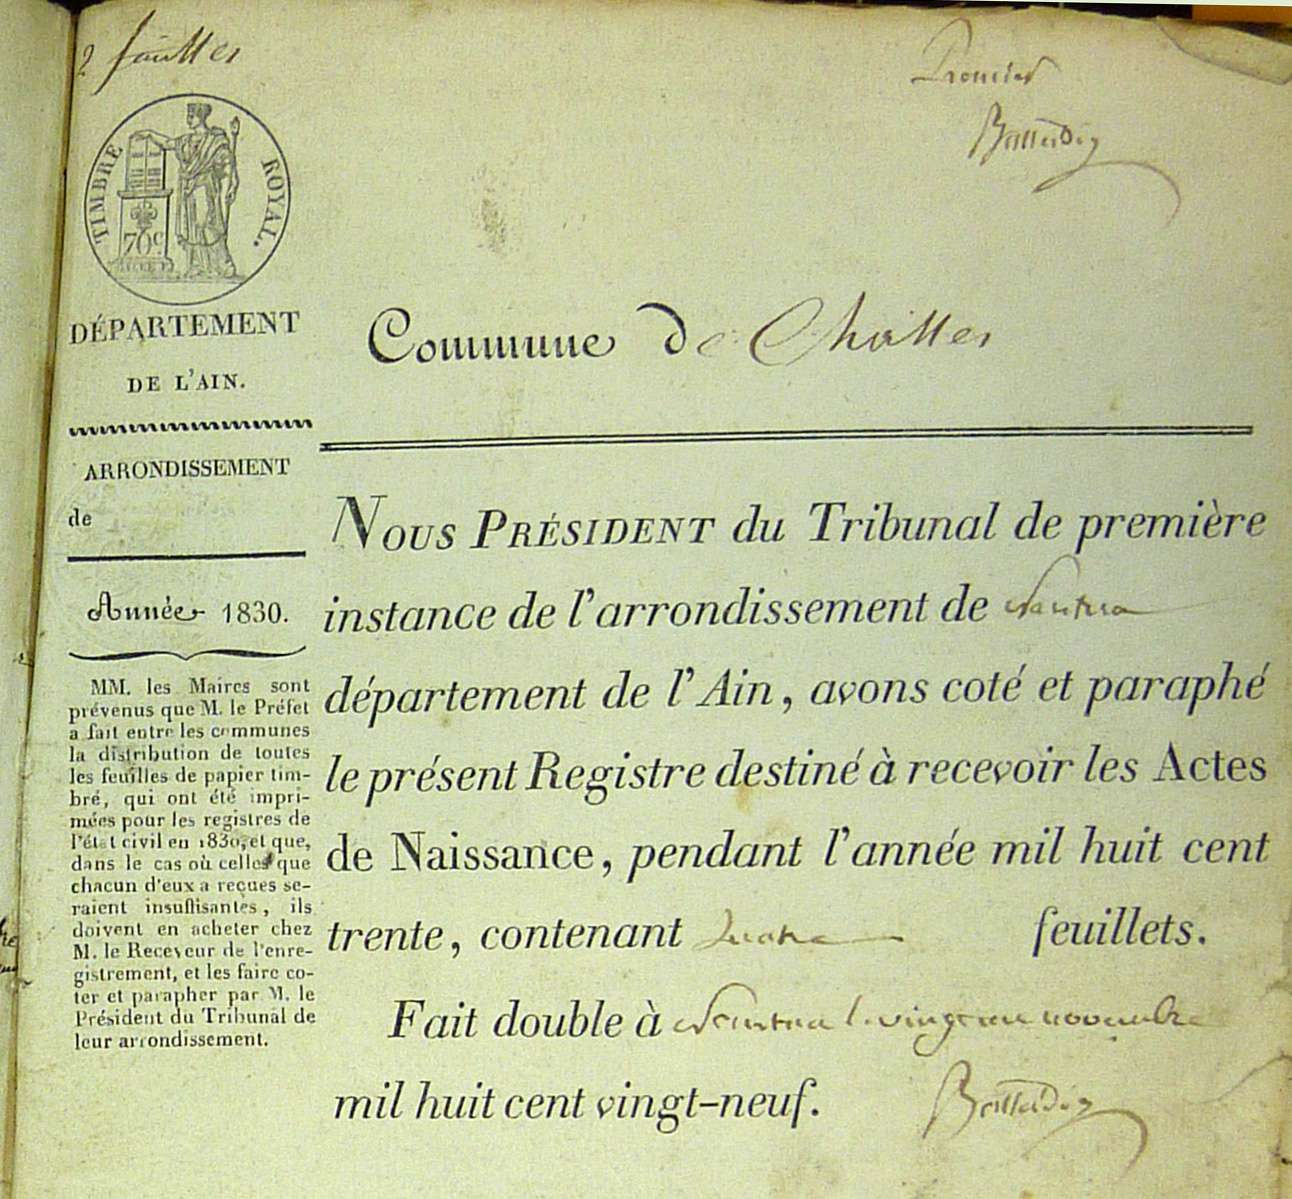 2 feuilles
Premier
TIMBRE ROYAL.
70 c
DÉPARTEMENT
DE L'AIN.
ARRONDISSEMENT
de
Année 1830.
MM. les Maires sont
prévenus que M. le Préfet
a fait entre les communes
la distribution de toutes
les feuilles de papier tim-
bré, qui ont été impri-
mées pour les registres de
l'état civil en 1830, et que,
dans le cas où celles que
chacun d'eux a reçues se-
raient insuffisantes, ils
doivent en acheter chez
M. le Receveur de l'enre-
gistrement, et les faire co-
ter et parapher par M. le
Président du Tribunal de
leur arrondissement.
Commune de Challes
NOUS PRÉSIDENT du Tribunal de première
instance de l'arrondissement de Nantua
département de l'Ain, avons coté et paraphé
le présent Registre destiné à recevoir les Actes
de Naissance, pendant l'année mil huit cent
trente, contenant quatre feuillets.
Fait double à Nantua le vingt un novembre
mil huit cent vingt-neuf.